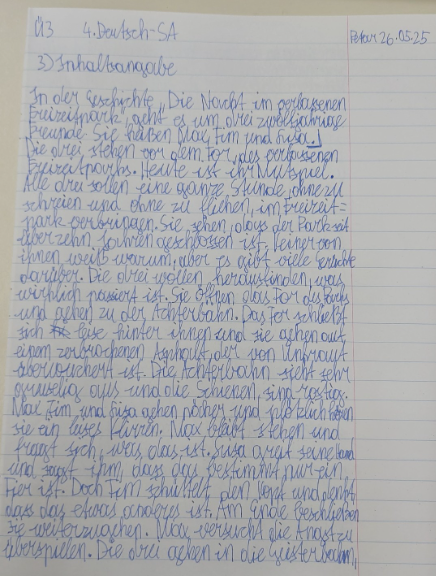 Ü3 4. Deutsch-SA
Petar 26.05.25
3) Inhaltsangabe
In der Geschichte „Die Nacht im verlassenen
Freizeitpark" geht es um drei zwölfjährige
Freunde. Sie heißen Max, Tim und Lisa.
Die drei stehen vor dem Tor, des verlassenen
Freizeitparks. Heute ist ihr Mutspiel.
Alle drei sollen eine ganze Stunde, ohne zu
schreien und ohne zu fliehen, im Freizeit=
park verbringen. Sie sehen, dass der Park seit
über zehn Jahren geschlossen ist. Keiner von
ihnen weiß warum, aber es gibt viele Gerüchte
darüber. Die drei wollen herausfinden, was
wirklich passiert ist. Sie öffnen das Tor des Parks
und gehen zu der Achterbahn. Das Tor schließt
sich leise hinter ihnen und sie gehen auf
einem zerbrochenen Asphalt, der von Unkraut
überwuchert ist. Die Achterbahn sieht sehr
gruselig aus und die Schienen sind rostig.
Max Tim und Lisa gehen näher und plötzlich hören
sie ein leises Klirren. Max bleibt stehen und
fragt sich, was das ist. Lisa greift seine Hand
und sagt ihm, dass das bestimmt nur ein
Tier ist. Doch Tim schüttelt den Kopf und denkt
dass das etwas anderes ist. Am Ende beschließen
sie weiterzugehen. Max versucht die Angst zu
überspielen. Die drei gehen in die Geisterbahn,